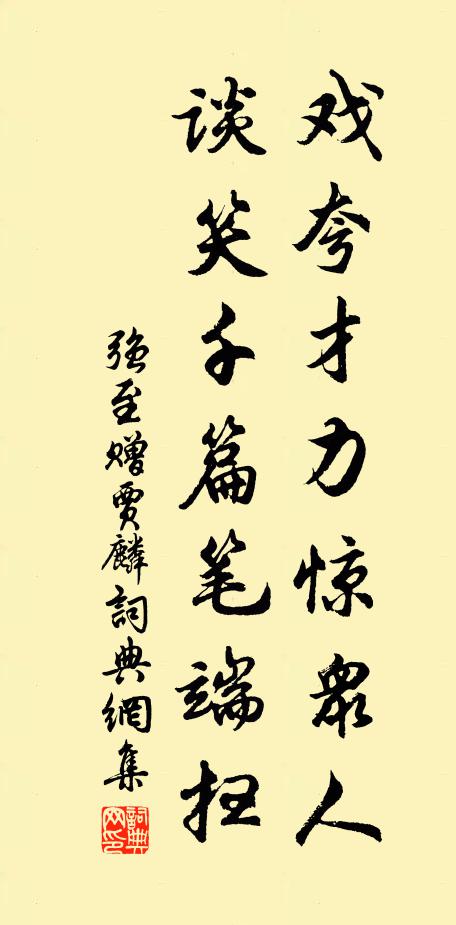 戏夸才力惊众人
谈笑千篇笔端扫
强至赠贾麟詞典網集
詞典网印